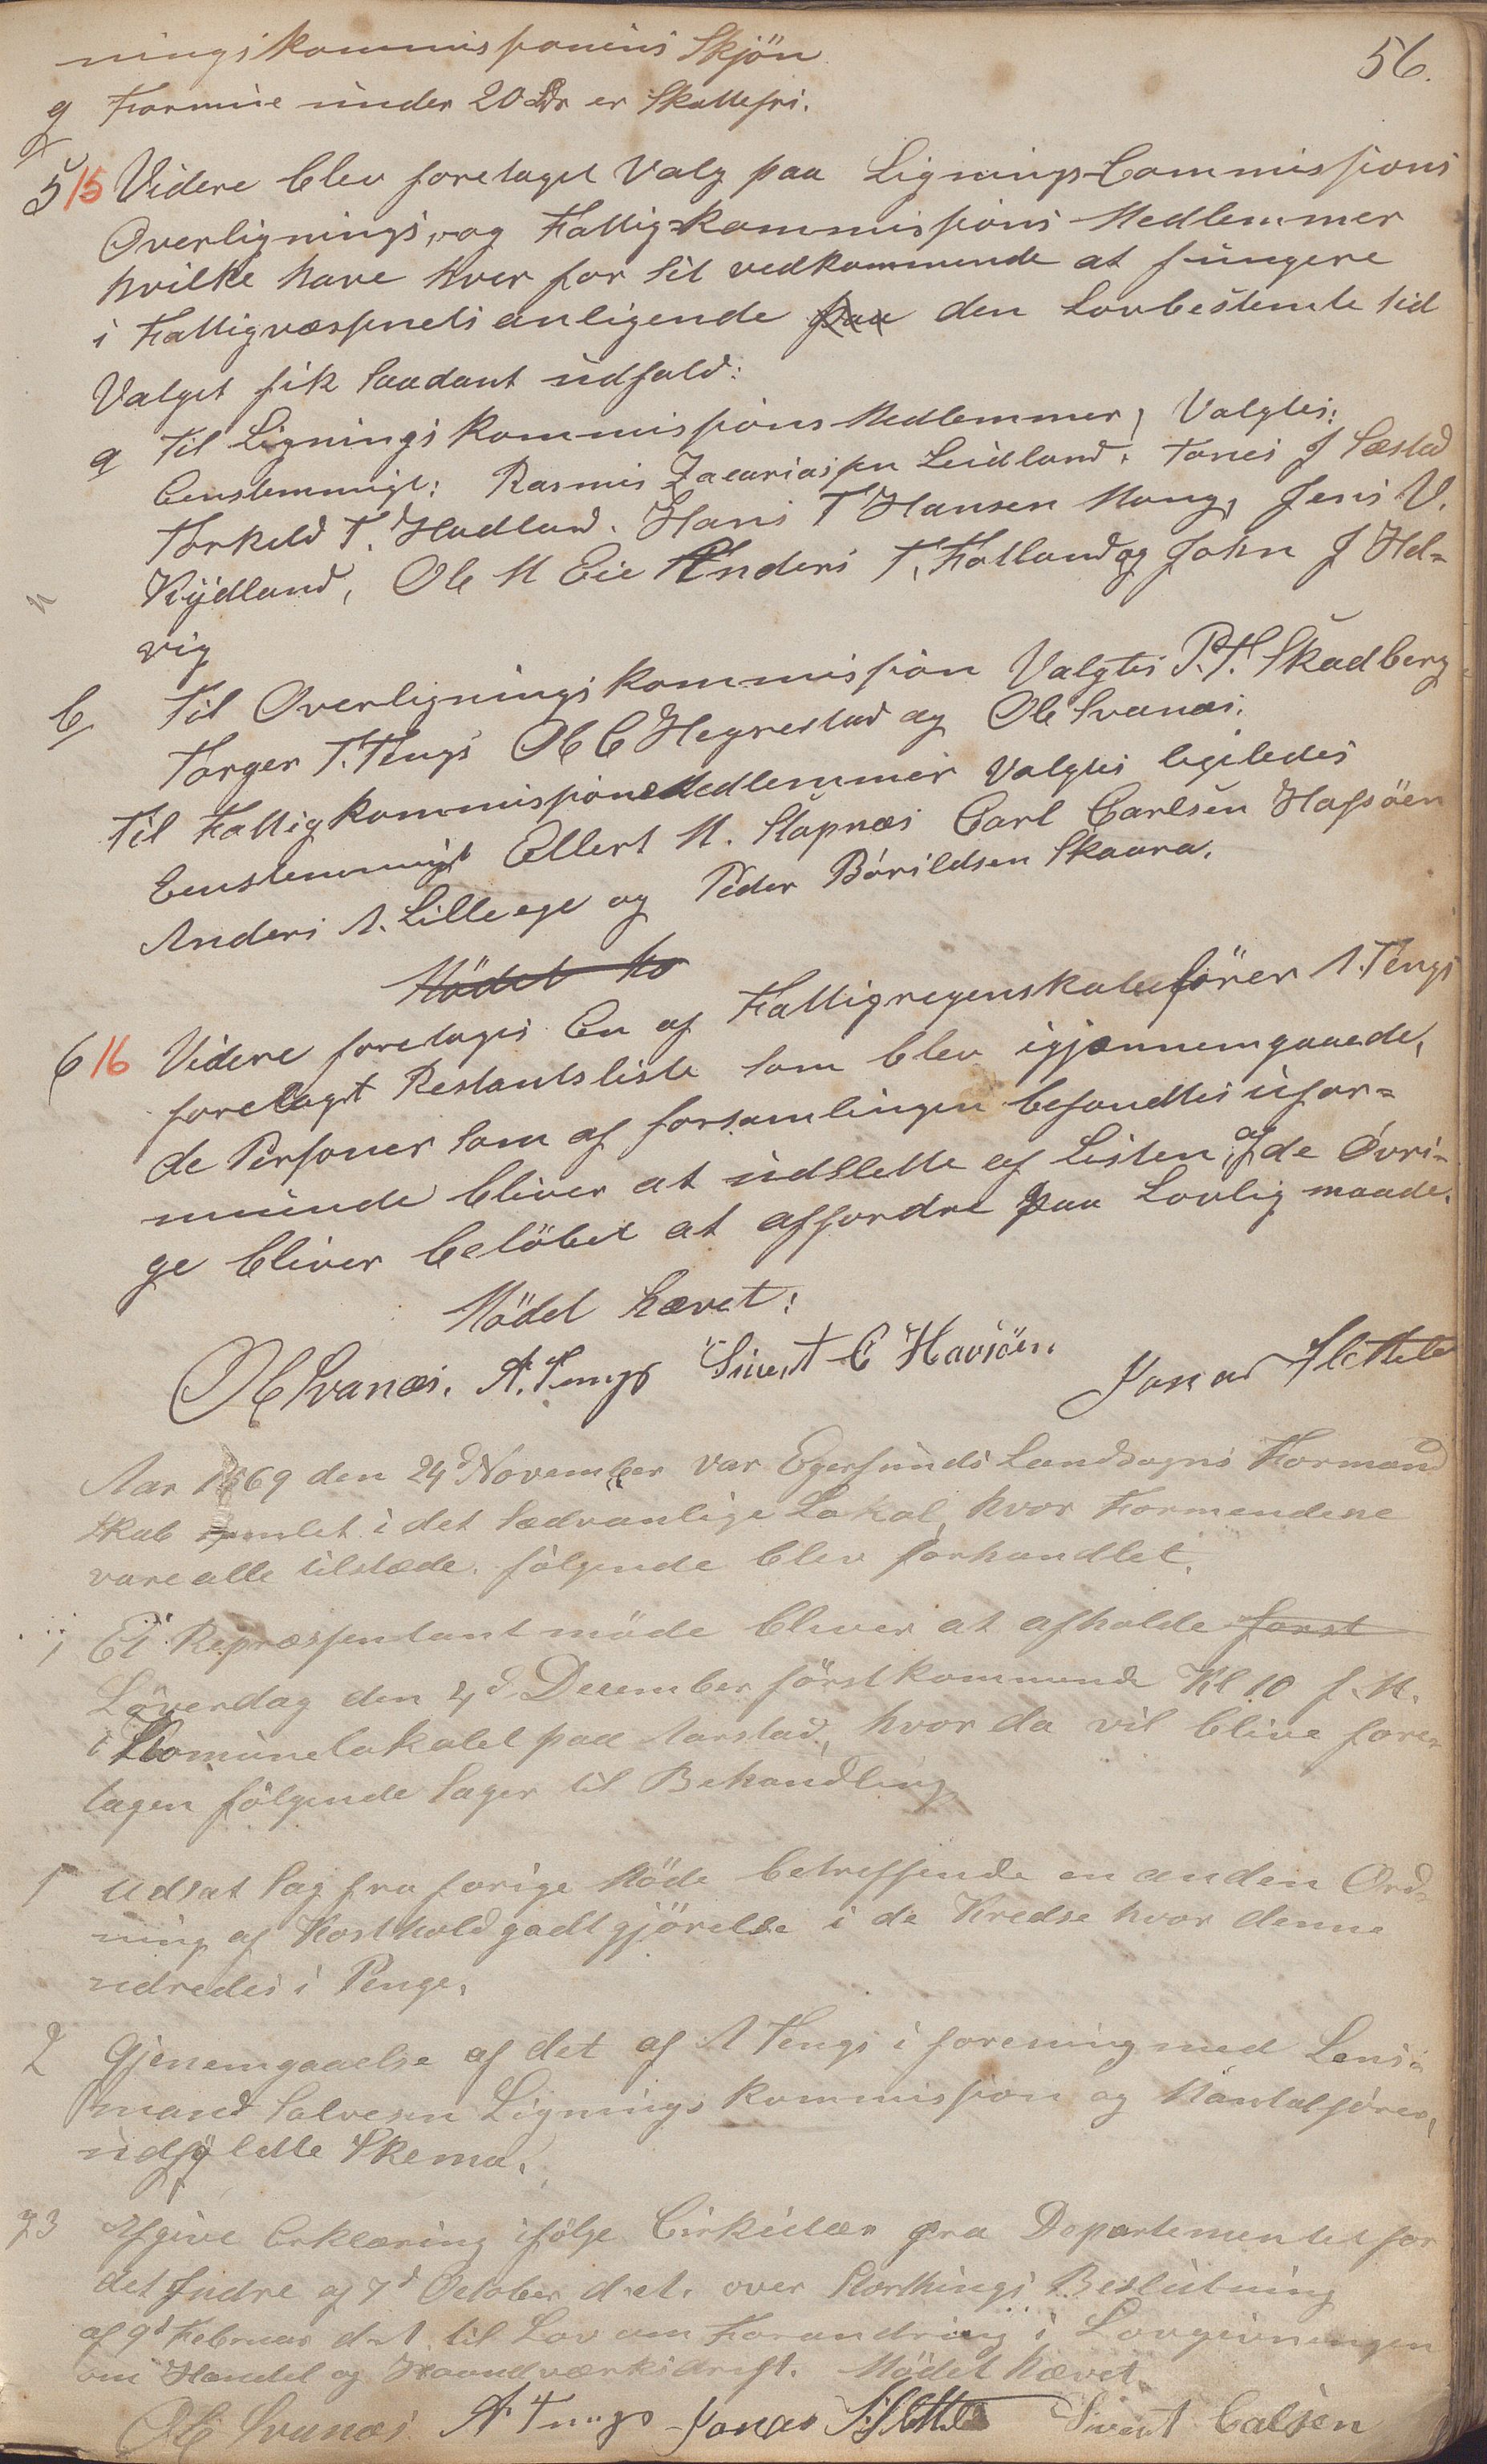 ningskommissionens Skjön
56.
g Formue under 20 Sdr er Skattefri.
5/15 Videre blev foretaget Valg paa Lignings-Commissions
Overlignings, og Fattigkommissions Medlemmer
hvilke have hver for sit vedkommende at fungere
i Fattigvæssnets anligende paa den Lovbestemte tid
Valget fik Saadant udfald:
a Til Ligningskommissions Medlemmer, Valgtes:
Eenstemmigt: Rasmus Zacariassen Leidland. Tønes J Sæstad
Torkild T. Hadland. Hans T Hansen Mong, Jens V.
Kydland, Ole M Eie Anders T. Fotland og John J Hel-
vig
b/ Til Overligningskommission Valgtes P.T. Skadberg
Torger T. Tengs Ole C Hegrestad og Ole Svanæs.
Til Fattigkommissions Medlemmer Valgtes ligeledes
Eenstemmigt Ellert M. Stapnæs Carl Carlsen Hafsöen
Anders A. Lilleege og Peder Bårildsen Skaara.
Mödet hæ
6 16 Videre foretages En af Fattigregenskabsförer A. Tengs
forelagt Restantsliste som blev igjænnemgaaede,
de Personer som af forsamlingen befandtes ufor-
muende bliver at udslette af Listen, af de Övri-
ge bliver belöbet at affordre paa Lovlig maade.
Mödet hævet:
Ole Svanæs. A. Tengs Sivert C Havsöen. Jonas Slettebø
Aar 1869 den 24d November var Egersunds Landsogns Formand
skab samlet i det Sædvanlige Lokal, hvor Formendene
vare alle tilstæde. følgende blev forhandlet.
1 Et Repræssentant möde bliver at afholde först
Löverdag den 4d December förstkommende Kl 10 f. M.
i Komunelokalet paa Aarstad, hvor da vil blive fore-
tagen fölgende Sager til Behandling
1 Udsat Sag fra forige Möde betreffende en anden Ord-
ning af Kostholdgodtgjörelse i de Kredse hvor denne
udredes i Penge.
2 Gjenemgaaelse af det af A Tengs i forening med Lens-
mand Salvesen Ligningskommission og Mantalförer,
udfyldte Skema.
3 Afgive Erklæring ifölge Cirkulær fra Departementet for
det Indre af 7d October d.A. over Storthings Beslutning
af 9d Februar d.A. til Lov om Forandring i Lovgivningen
om Handel og Haandværksdrift. Mödet hævet.
Ole Svanæs A. Tengs Jonas Slettebø Sivert Calsen